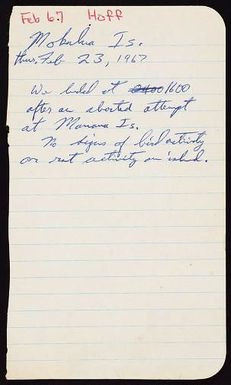 Feb 67 Hoff
Mokulua Is.
Thurs. Feb 23, 1967
We landed at 1600
after an aborted attempt
at Manana Is.
No signs of bird activity
or rat activity on island.